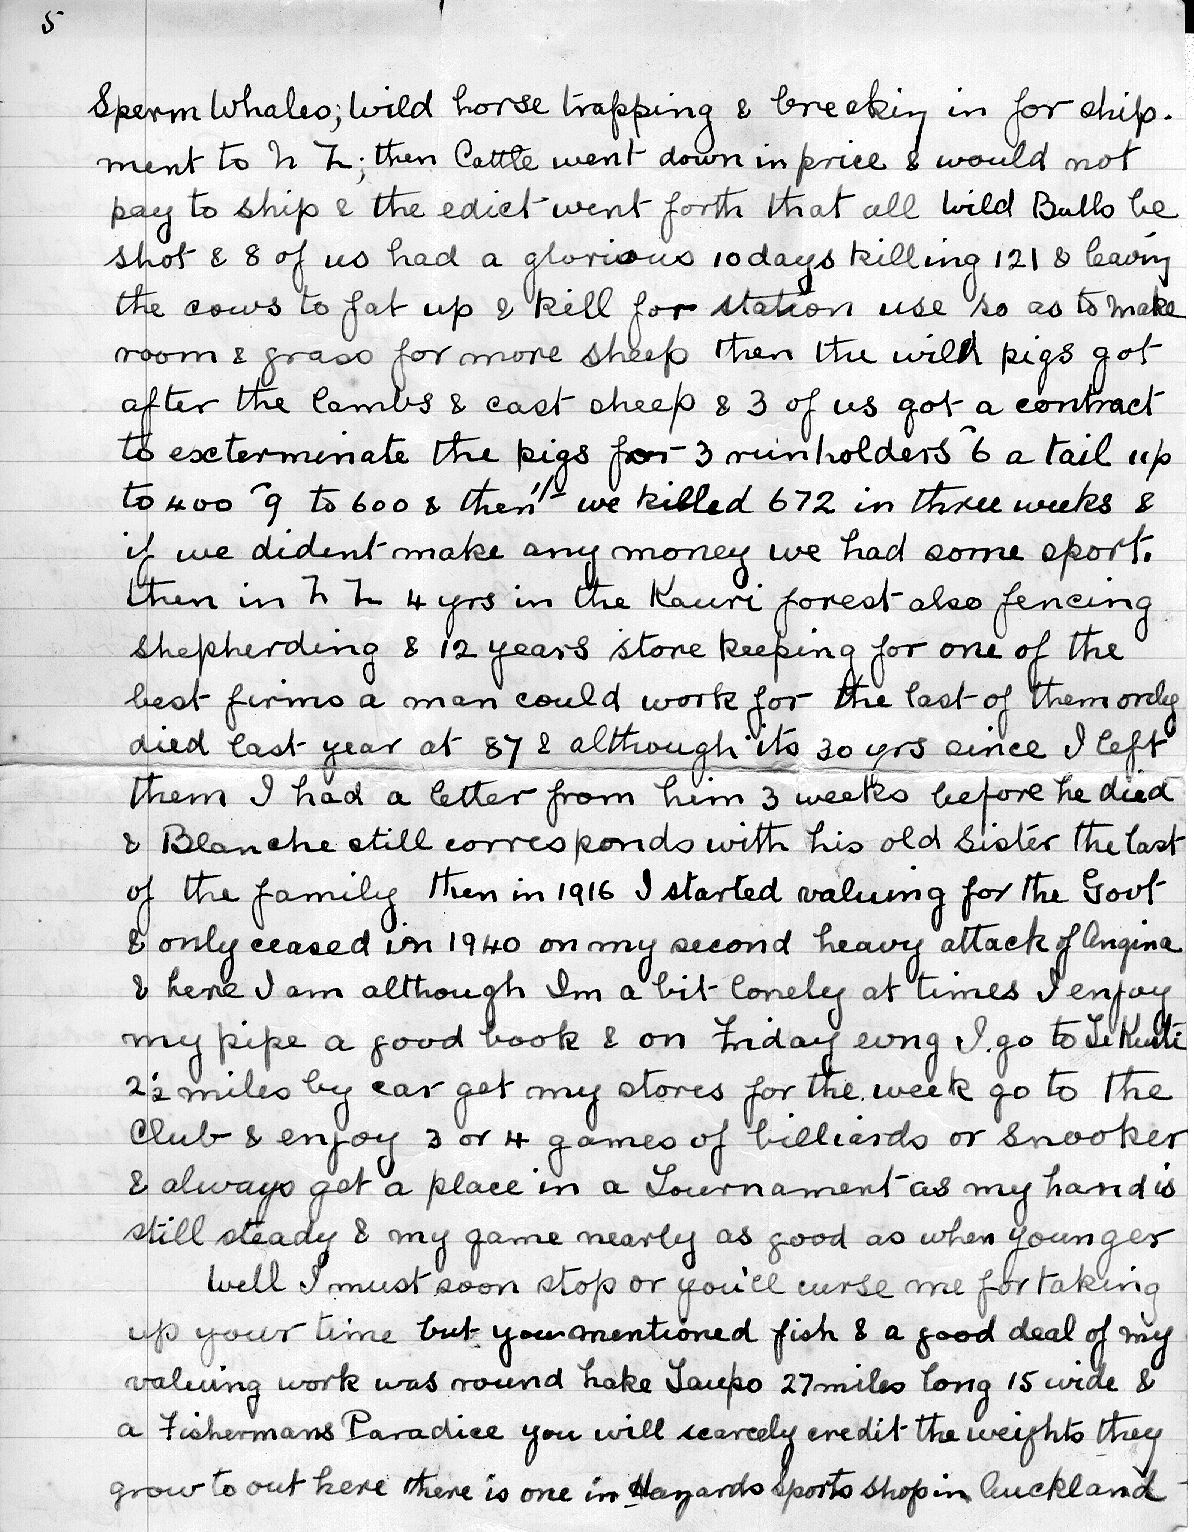 5
Sperm Whales; Wild horse trapping & breaking in for ship-
ment to N Z; then Cattle went down in price & would not
pay to ship & the edict went forth that all Wild Bulls be
shot & 8 of us had a glorious 10 days killing 121 & leaving
the cows to fat up & kill for station use so as to make
room & grass for more sheep then the wild pigs got
after the lambs & cast sheep & 3 of us got a contract
to exterminate the pigs for 3 runholders -6 a tail up
to 400 -9 to 600 & then 1/- we killed 672 in three weeks &
if we dident make any money we had some sport.
then in N Z 4 yrs in the Kauri forest also fencing
shepherding & 12 years store keeping for one of the
best firms a man could work for the last of them only
died last year at 87 & although its 30 yrs since I left
them I had a letter from him 3 weeks before he died
& Blanche still corresponds with his old Sister the last
of the family then in 1916 I started valuing for the Govt
& only ceased in 1940 on my second heavy attack of Angina
& here I am although Im a bit lonely at times I enjoy
my pipe a good book & on Friday evng I go to Te Kuiti
2½ miles by car get my stores for the week go to the
Club & enjoy 3 or 4 games of billiards or Snooker
& always get a place in a Tournament as my hand is
still steady & my game nearly as good as when younger
Well I must soon stop or you'll curse me for taking
up your time but you mentioned fish & a good deal of my
valuing work was round Lake Taupo 27 miles long 15 wide &
a Fishermans Paradice you will scarcely credit the weights they
grow to out here there is one in Hazards Sports Shop in Auckland